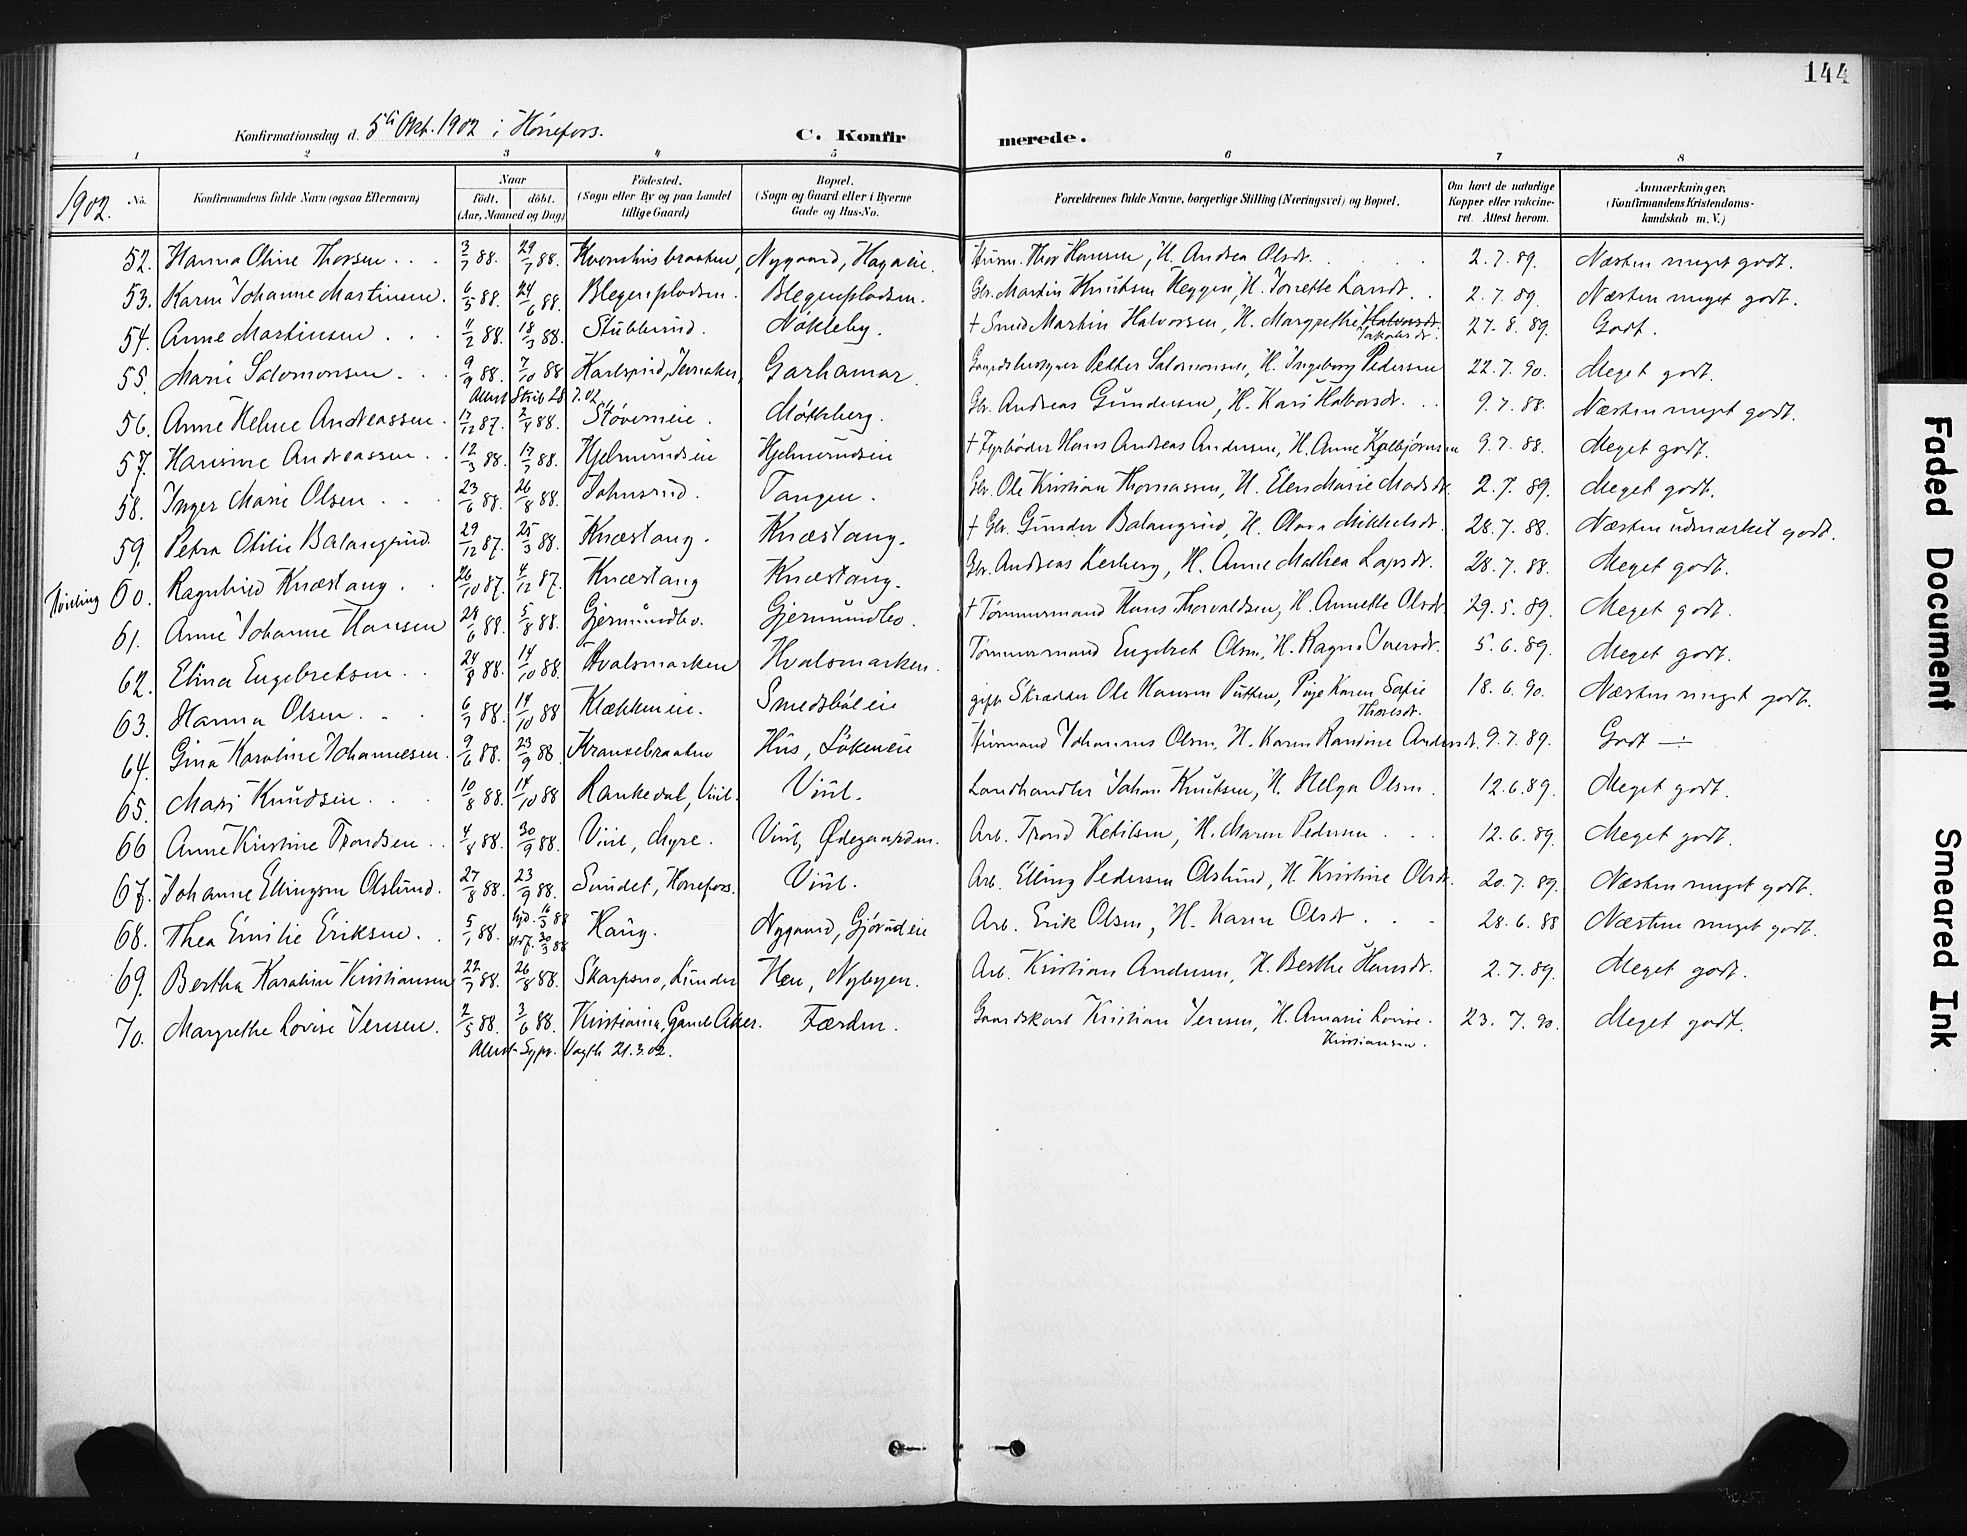 144
Konfirmationsdag d. 5te Okt. 1902 i Hönefos.
C. Konfirmerede.
1 2 3 4 5 6 7 8
1902. No. Konfirmandens fulde Navn (ogsaa Efternavn) Naar födt. döbt. (Aar, Maaned og Dag) Födested. (Sogn eller By og paa Landet tillige Gaard) Bopæl. (Sogn og Gaard eller i Byerne Gade og Hus-No. Forældrenes fulde Navne, borgerlige Stilling (Næringsvei) og Bopæl. Om havt de naturlige Kopper eller vaccineret. Attest herom. Anmærkninger. (Konfirmandens Kristendomskundskab m. V.)
52. Hanna Oline Thorsen 3/7 88. 29/7 88. Kvernhusbraaten, Nygaard, Hagaeie. Husm. Thor Hansen, H. Andrea Olsdt. 2.7.89. Næsten meget godt.
53. Karen Johanne Martinsen. 6/5 88. 24/6 88. Blegenpladsen. Blegenpladsen. Gbr. Martin Knutsen Heggen, H. Jonette Larsdt. 2.7.89. Næsten meget godt.
54. Anne Martinsen 11/2 88. 18/3 88. Stubberud. Nökleby. † Smed Martin Halvorsen, H. Margrethe Halvorsdt. Jakobsdt. 27.8.89. Godt.
55. Marie Salomonsen 9/9 88. 7/10 88 Karlsrud, Jevnaker, Garhamar. Gaardsbestyrer Petter Salomonsen, H. Ingeborg Pedersen 22.7.90. Meget godt.
Attest Strib 28.7.02.
56. Anne Helene Andreassen. 17/12 87. 2/4 88. Störeneie. Mökleberg. Gbr. Andreas Gundersen, H. Kari Halvorsdt. 9.7.88. Næsten meget godt.
57. Hansine Andreassen 12/3 88. 17/5 88. Hjelmundseie Hjelmundseie † Fyrböder Hans Andreas Andersen, H. Anne Kolbjörnsen 9.7.88. Meget godt.
58. Inger Marie Olsen 23/6 88. 26/8 88. Johnsrud. Tangen. Gbr. Ole Kristian Thomassen, H. Elen Marie Madsdt. 2.7.89. Meget godt.
59. Petra Otilie Balangrud. 29/12 87. 25/3 88. Knæstang. Knæstang. † Gbr. Gunder Balangrud, H. Olava Mikkelsdt. 28.7.88. Næsten udmærket godt.
60. Ragnhild Knæstang. 26/10 87. 4/12 87. Knæstang Knæstang. Gbr. Andreas Lerberg, H. Anne Mathea Larsdt. 28.7.88. Meget godt.
61. Anne Johanne Hansen 24/6 88. 5/8 88. Gjermundbo. Gjermundbo. † Tömmermand Hans Thorvaldsen, H. Annette Olsdt. 29.5.89. Meget godt.
62. Elina Engebretsen 24/8 88. 14/10 88. Hvalsmarken Hvalsmarken. Tömmermand Engebret Olsen, H. Ragne Iversdt. 5.6.89. Meget godt.
63. Hanna Olsen. 6/7 88. 14/10 88 Klækkeneie. Smedsböleie gift Skrædder Ole Hansen Putten, Pige Karen Sofie Thoresdt. 18.6.90. Næsten meget godt.
64. Gina Karoline Johannesen. 9/6 88. 23/9 88. Kransebraaten Hus, Lökeneie Husmand Johannes Olsen, H. Karen Randine Andersdt. 9.7.89. Godt ÷
65. Mari Knudsen. 10/8 88. 14/10 88 Rankedal, Viul. Viul. Landhandler Johan Knutsen, H. Helga Olsen. 12.6.89. Meget godt.
66 Anne Kristine Trondsen 4/8 88. 30/9 88. Viul, Myre. Viul, Ödegaarden. Arb. Trond Ketilsen, H. Maren Pedersen 12.6.89. Meget godt.
67. Johanne Ellingsen Olslund. 27/8 88. 23/9 88. Sundet, Hönefos. Viul. Arb. Elling Pedersen Olslund, H. Kristine Olsdt. 20.7.89. Næsten meget godt.
68. Thea Emilie Eriksen. 5/1 88. 88 30/3 88 Haug. Nygaard, Gjörudeie Arb. Erik Olsen, H. Karen Olsdt. 28.6.88 Næsten meget godt.
69. Bertha Karoline Kristiansen 22/7 88. 26/8 88. Skarpsno, Lunder Hen, Nybyen. Arb. Kristian Andersen, H. Berthe Hansdt. 2.7.89. Meget godt.
70. Margrethe Lovise Jensen. 2/5 88. 3/6 88. Kristiania, Gamle Aker. Færden. Gaardskarl Kristian Jensen, H. Amarie Lovise Kristiansen. 23.7.90. Meget godt.
Attest Vogth 21.3.02.
Faded Document
Smeared Ink